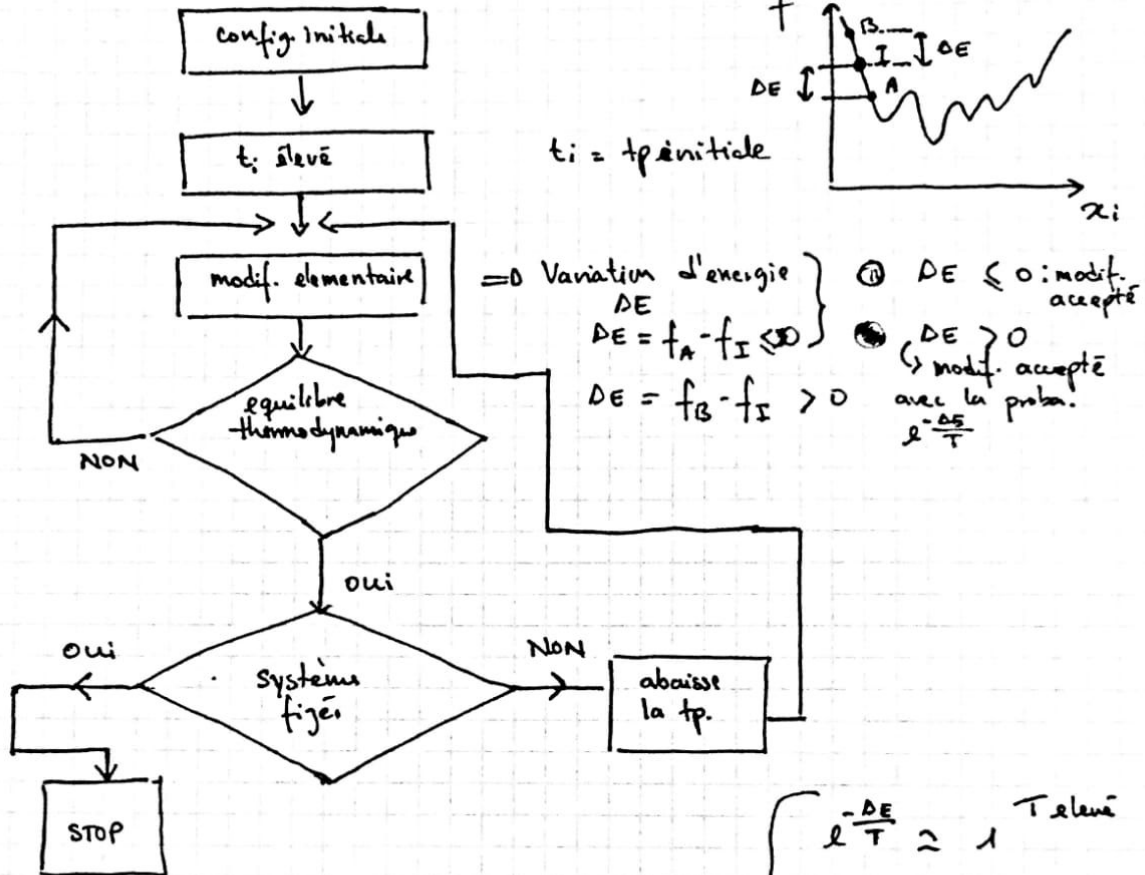 config. initiale
f
B
I
ΔE
ΔE
A
xi
ti élevé
ti = tp initiale
modif. elementaire
=D Variation d'energie
ΔE
ΔE = fA - fI ≤ 0
ΔE = fB - fI > 0
ΔE ≤ 0 : modif.
accepté
ΔE > 0
↳ modif. accepté
avec la proba.
e^-ΔE/T
equilibre
thermodynamique
NON
oui
oui
système
figé.
NON
abaisse
la tp.
STOP
e^-ΔE/T ≃ 1 T elevé